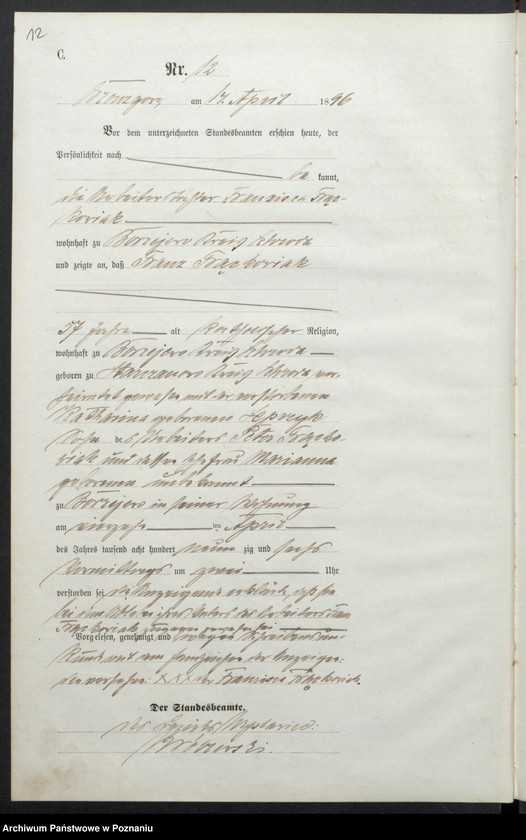 12
C.
Nr. 12
am 17. April 1896
Vor dem unterzeneten Standesbeamten erschien heute, der
Persönlichkeit nach
be kannt,
die Arbeitertochter Francisca Frąc-
koviak
wohnhaft zu Borzejewo Kreis Schroda
und zeigte an, daß Franz Frąckoviak
57 Jahre alt katholischer Religion,
wohnhaft zu Borzejewo Kreis Schroda
geboren zu Kreis Schroda, ver-
heirathet gewesen mit der verstorbenen
Katharina geborenen
Sohn des Arbeiters Peter Frącko-
viak und dessen Ehefrau Marianna
geborenen unbekannt
zu Borzejewo in seiner Wohnung
am vierzehn ten April
des Jahres tausend acht hundert neun zig und sechs
Vormittags um zwei Uhr
verstorben sei, die Anzeigende erklärte, daß sie
bei dem Ableben ihres Vaters des Arbeiters Franz
Frąckoviak zugegen gewesen sei
Vorgelesen, genehmigt und wegen Schreibensun-
kunde mit dem Handzeichen der Anzeigen-
den versehen: XXX der Francisca Frąckoviak.
Der Standesbeamte.
Archiwum Państwowe w Poznaniu